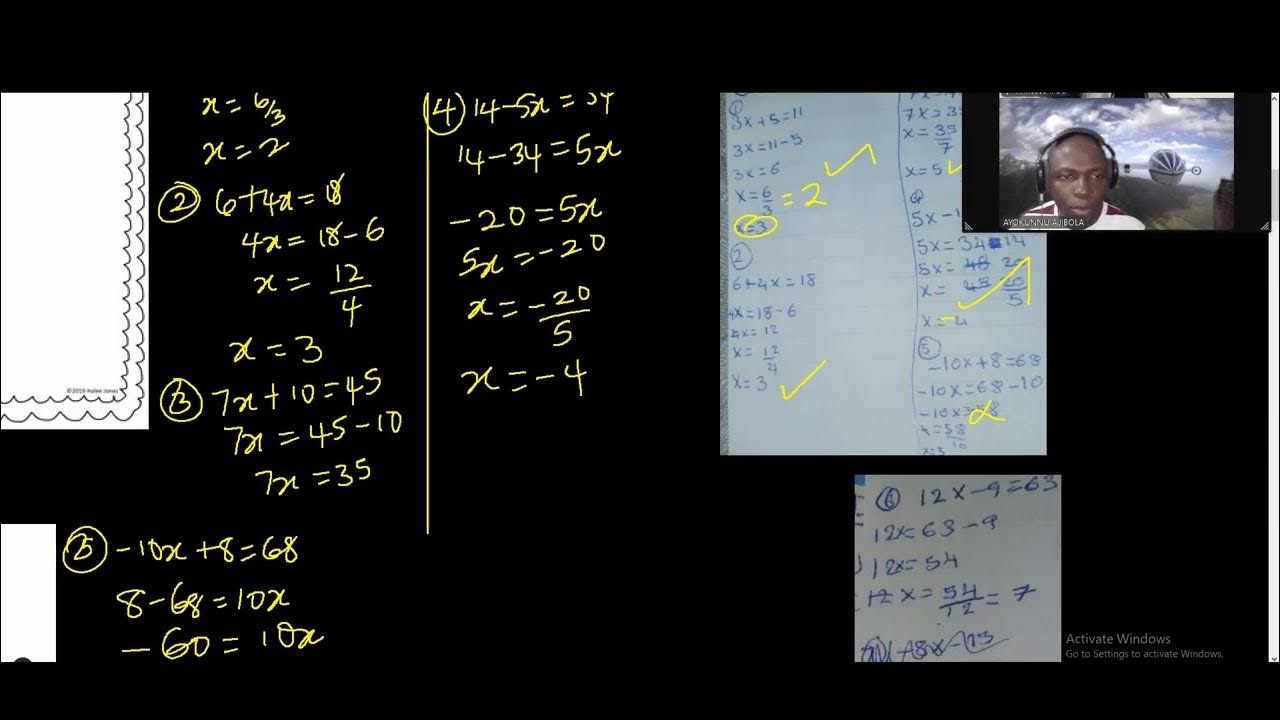 x = 6/3
x = 2
② 6+4x = 18
4x = 18 - 6
x = 12/4
x = 3
③ 7x + 10 = 45
7x = 45 - 10
7x = 35
©2019 Halee Jones
⑤ -10x + 8 = 68
8 - 68 = 10x
-60 = 10x
④ 14 - 5x = 34
14 - 34 = 5x
-20 = 5x
5x = -20
x = -20/5
x = -4
3x+5=11
3x=11-5
3x=6
x=6/3 = 2
x=3
②
6+4x=18
4x=18-6
4x=12
x=12/4
x=3
x=35/7
x=5
5x-1
5x=34 14
5x= 48 20
x=
x=-4
⑤
-10x+8=68
-10x=68-10
x=58/10
⑥ 12x-9=63
12x=63-9
12x=54
12 x=54/12=7
AYOKUNNU AJIBOLA
Activate Windows
Go to Settings to activate Windows.